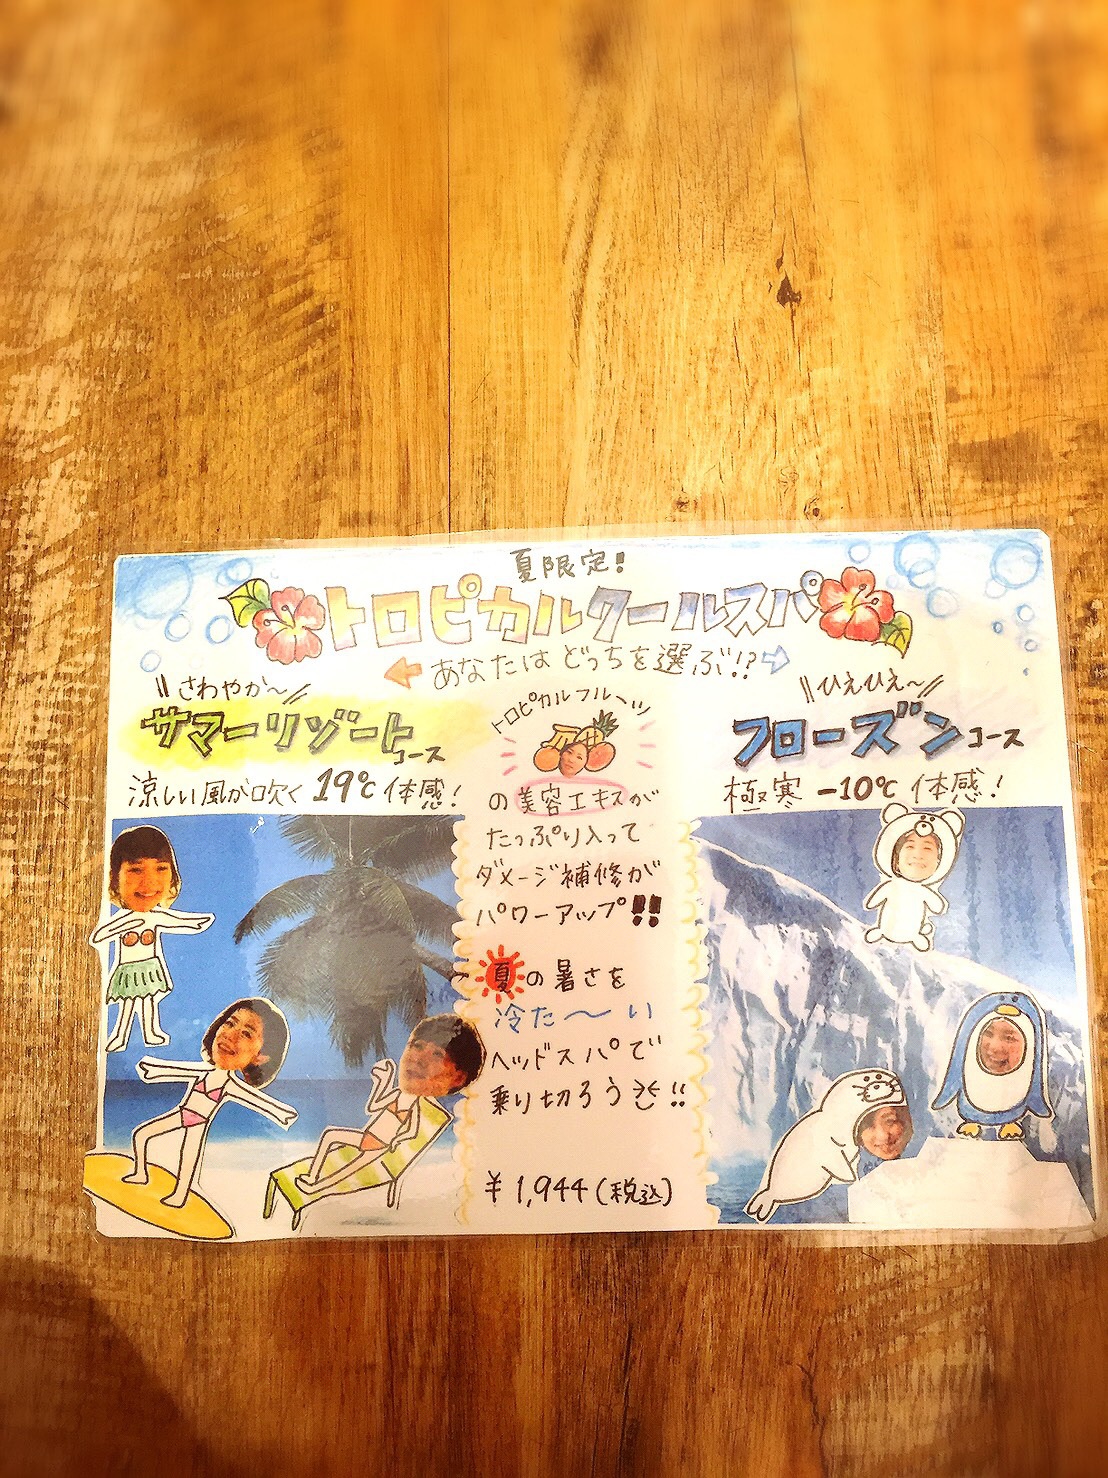 夏限定!
トロピカルクールスパ
あなたは どっちを選ぶ!?
さわやか〜
サマーリゾートコース
涼しい風が吹く 19℃ 体感!
トロピカルフルーツ
の美容エキスが
たっぷり入って
ダメージ補修が
パワーアップ!!
夏の暑さを
冷た〜い
ヘッドスパで
乗り切ろう!!
¥1,944(税込)
ひえひえ〜
フローズンコース
極寒 -10℃ 体感!